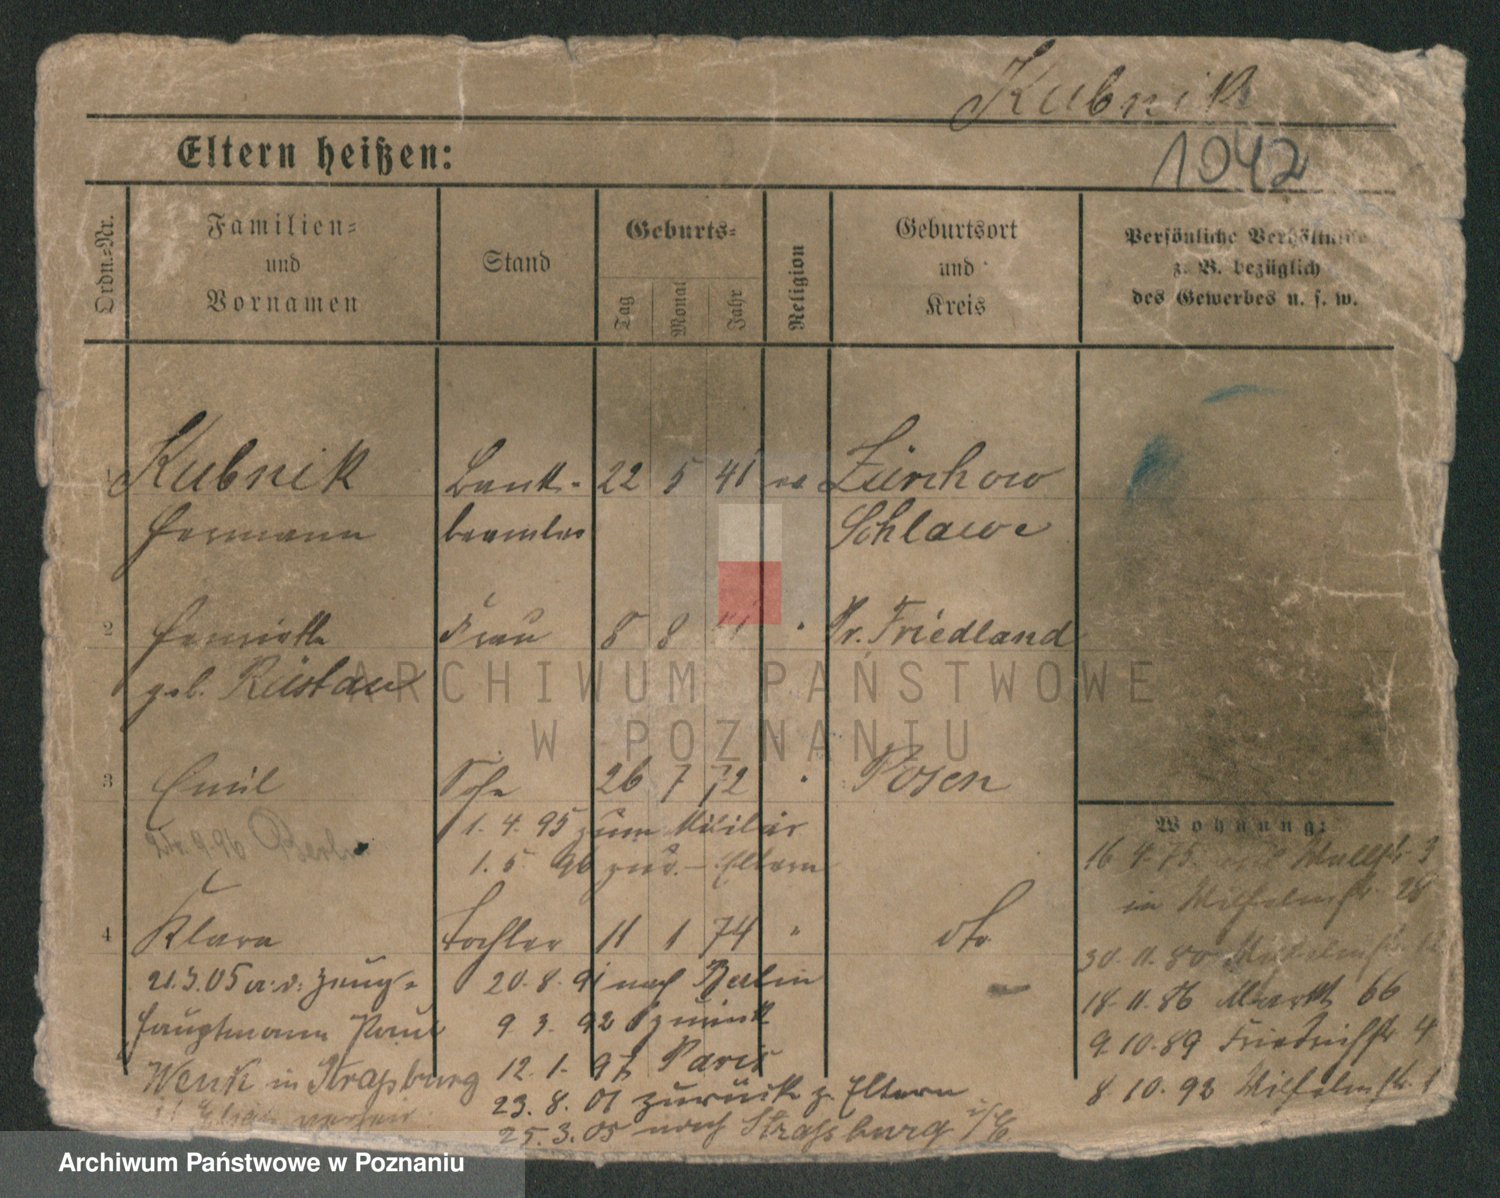 Kubnik
Eltern heißen:
1042
Ordn.-Nr.
Familien-
und
Vornamen
Stand
Geburts-
Tag
Monat
Jahr
Religion
Geburtsort
und
Kreis
Persönliche Verhältnisse
z. B. bezüglich
des Gewerbes u. s. w.
Kubnik Bank- 22 5 41 Zürchow
Hermann beamter Schlawe
2 Henriette Frau 8 8 " Pr. Friedland
geb. Rüstau
3 Emil Sohn 26 7 72 " Posen
1. 4. 95 zum Militär
1. 5 96 zur. - Eltern
9.96 Berlin
4 Klara Tochter 11 1 74 " dto
21.3.05 a. d. Zeug- 20. 8. 91 nach Berlin
hauptmann Paul 9 3. 92 zurück
Wenk in Straßburg 12. 1. 97 Paris
23. 8. 01 zurück z. Eltern
25. 3. 05 nach Straßburg i/E
Wohnung:
16 4. 75. Wallstr 3
in Wilhelmstr. 28
30. 11. 80 Wilhelmstr
18. 11. 86 Markt 66
9. 10. 89 Friedrichstr 4
8. 10. 92 Wilhelmstr. 1
ARCHIWUM PAŃSTWOWE
W POZNANIU
Archiwum Państwowe w Poznaniu